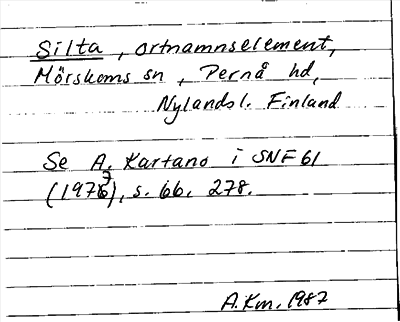 Silta, ortnamnselement,
Mörskoms sn, Pernå hd,
Nylandsl. Finland
Se A. Kartano i SNF 61
(1977), s. 66, 278.
A.Km. 1987